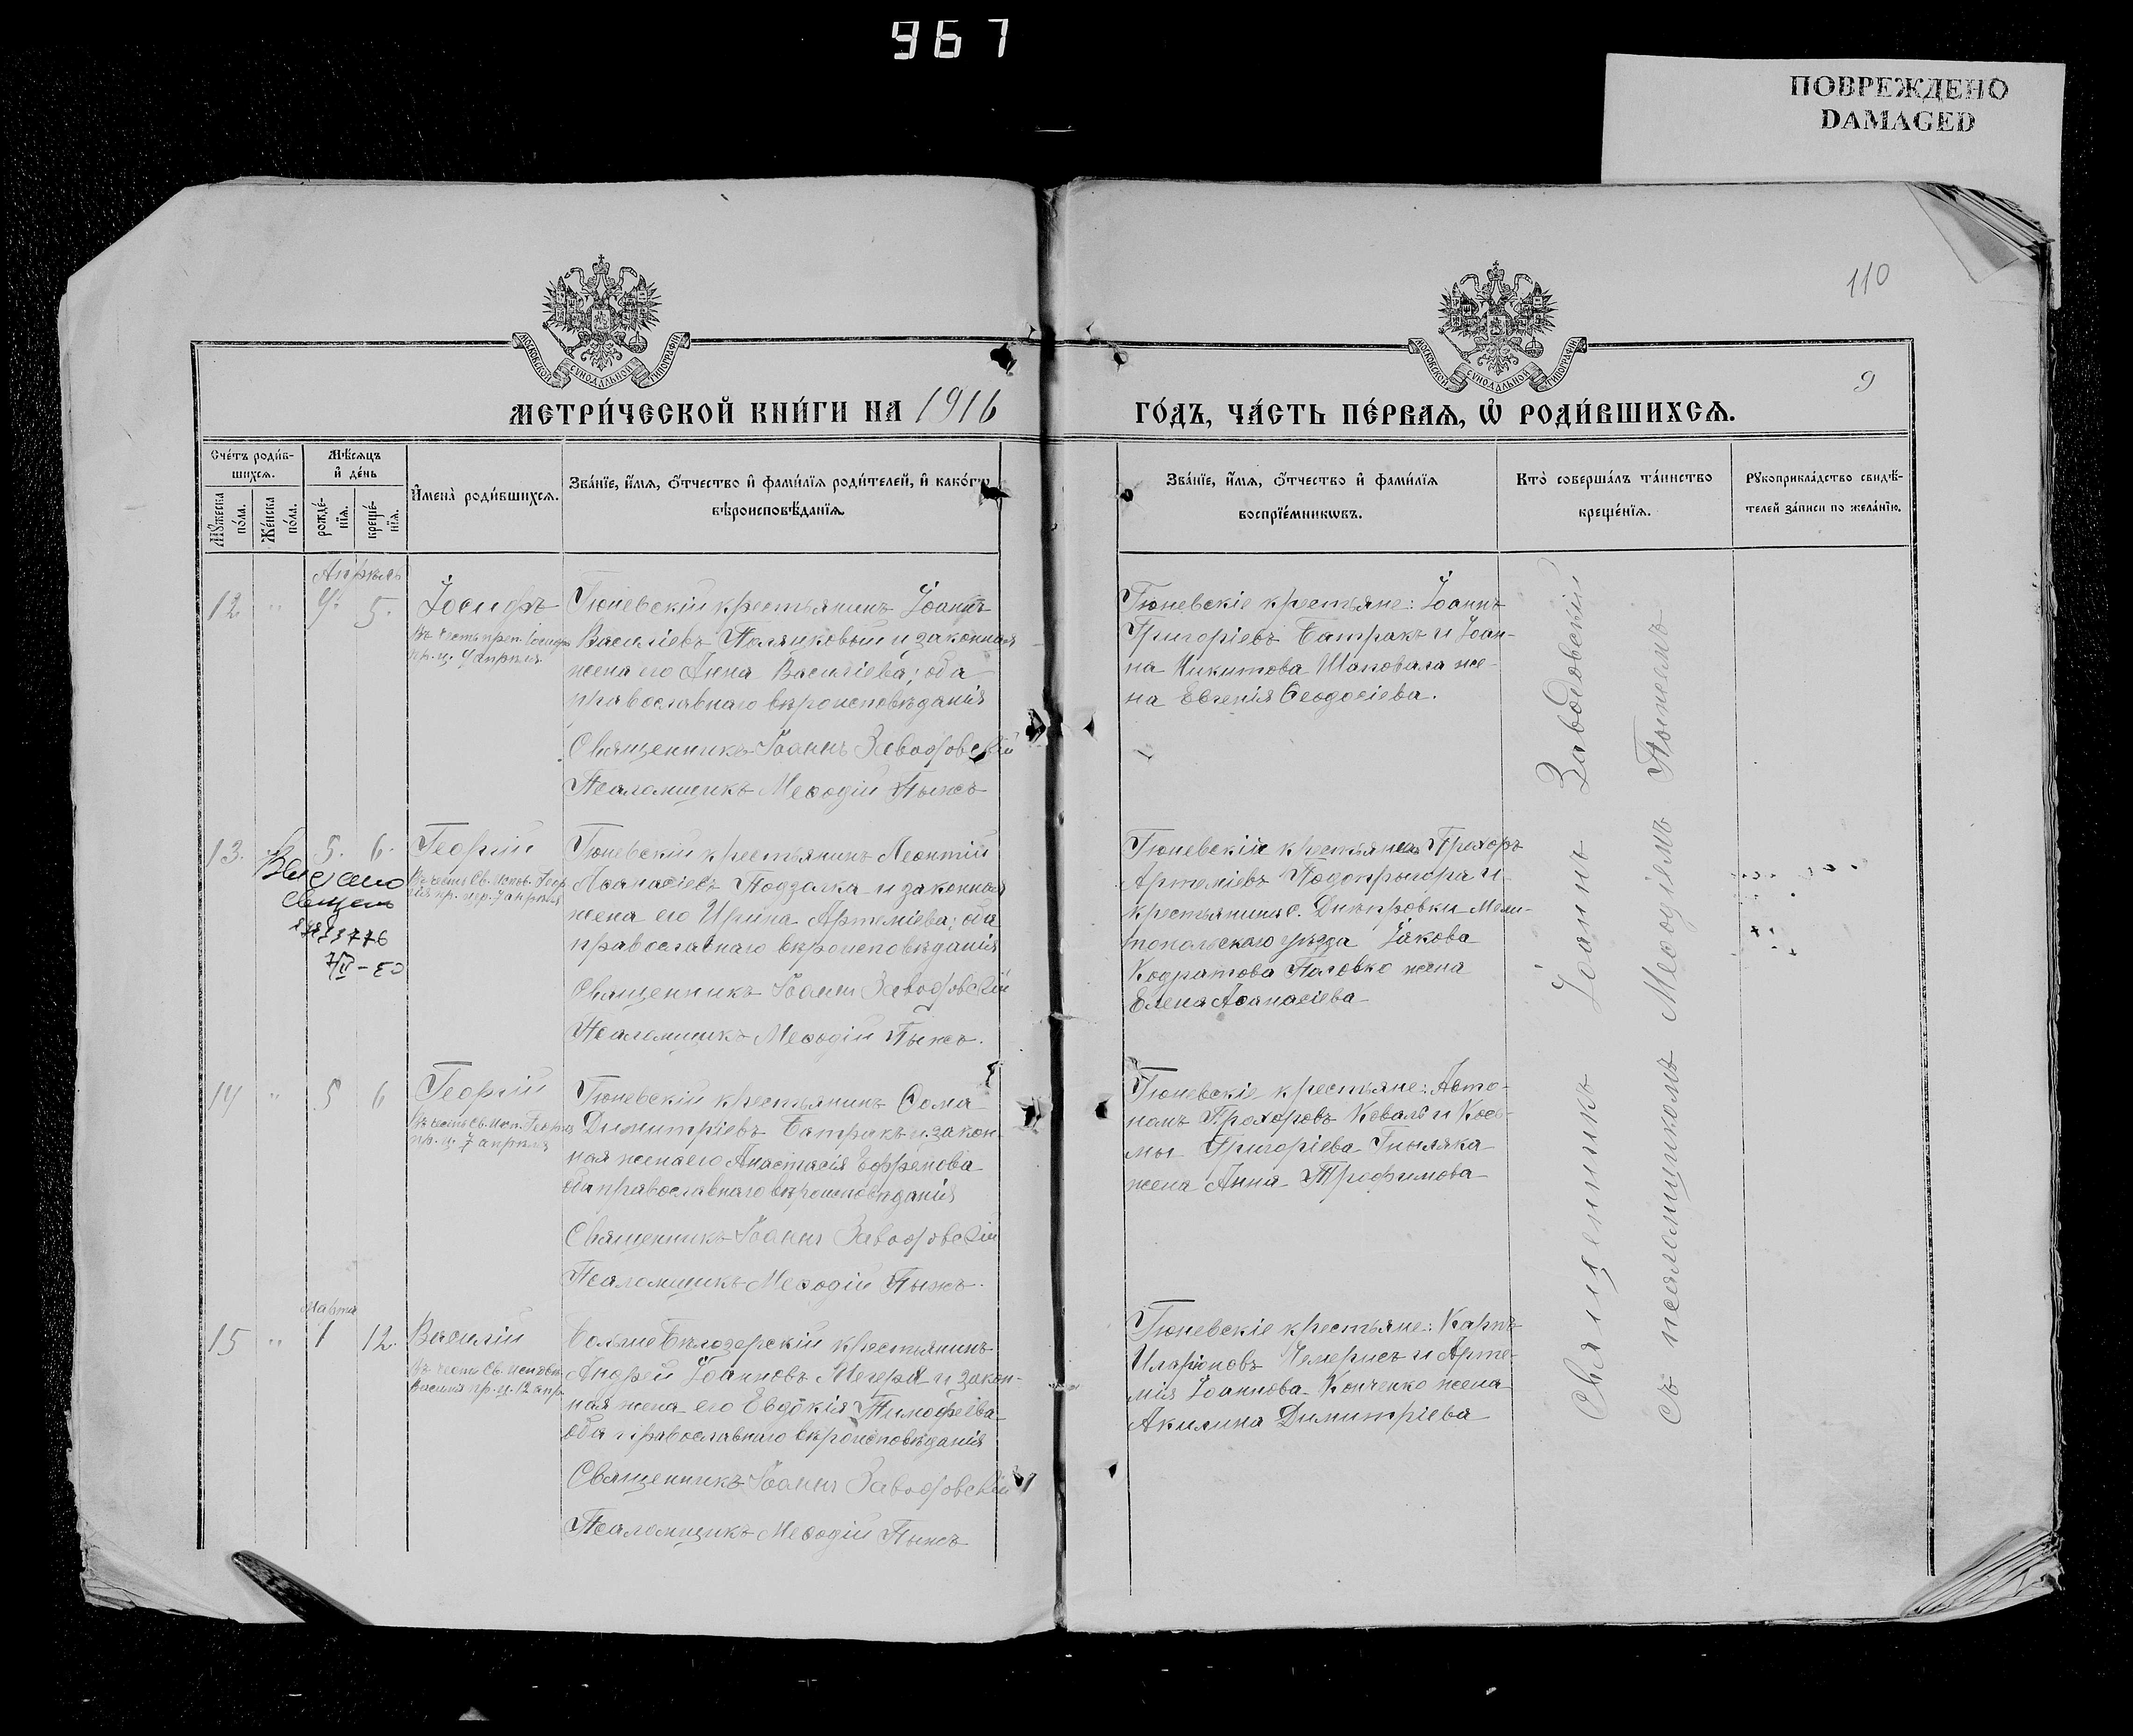 967
ПОВРЕЖДЕНО
DAMAGED
110
9
МОСКОВСКОЙ СѴНОДАЛЬНОЙ ТИПОГРАФІИ
МОСКОВСКОЙ СѴНОДАЛЬНОЙ ТИПОГРАФІИ
МЕТРИ́ЧЕСКОЙ КНИ́ГИ НА 1916
ГО́ДЪ, ЧА́СТЬ ПЕ́РВАѦ, Ѡ҆ РОДИ́ВШИХСѦ.
Сче́тъ роди́в-
шихсѧ.
Мꙋ́жеска
по́ла.
Же́нска
по́ла.
Мѣ́сѧцъ
и҆ де́нь
рожде́-
нїѧ.
креще́-
нїѧ.
И҆мена̀ роди́вшихсѧ.
Зва́нїе, и҆́мѧ, ѻ҆́тчество и҆ фами́лїѧ роди́телей, и҆ како́гѡ
вѣроисповѣ́данїѧ.
Зва́нїе, и҆́мѧ, ѻ҆́тчество и҆ фами́лїѧ
воспрїе́мникѡвъ.
Кто̀ соверша́лъ та́инство
креще́нїѧ.
Рꙋкоприкла́дство свидѣ́-
телей за́писи по жела́нїю.
Апрѣль
12 " 4. 5.
Іосифъ
Въ честь преп. Іосифа
пр. ц. 4 апрѣля
Гюневскій крестьянинъ Іоаннъ
Василіевъ Поляцковый и законная
жена его Анна Василіева; оба
православнаго вѣроисповѣданія
Священникъ Іоаннъ Заводовскій
Псаломщикъ Меѳодій Пыжъ
Гюневскіе крестьяне: Іоаннъ
Григоріевъ Батракъ и Іоан-
на Никитова Шаповала же-
на Евгенія Ѳеодосіева.
13. " 5. 6.
Выдано
7/IV-50
Георгій
Въ честь Св. Испов. Геор
гія пр. цер. 7 апрѣля
Гюневскій крестьянинъ Леонтій
Аѳанасіевъ Подзалка и законная
жена его Ирина Артеміева; оба
православнаго вѣроисповѣданія
Священникъ Іоаннъ Заводовскій
Псаломщикъ Меѳодій Пыжъ.
Гюневскій крестьянинъ Прохоръ
Артеміевъ Подопрыгора и
крестьянина с. Днѣпровки Мели-
топольскаго уѣзда Іакова
Кодратова Половко жена
Елена Аѳанасіева
14 " 5 6
Георгій
Въ честь Св. Исп. Георгія
пр. ц. 7 апрѣля
Гюневскій крестьянинъ Ѳома
Димитріевъ Батракъ и закон-
ная жена его Анастасія Ефремова
оба православнаго вѣроисповѣданія
Священникъ Іоаннъ Заводовскій
Псаломщикъ Меѳодій Пыжъ.
Гюневскіе крестьяне: Авто-
номъ Прохоровъ Коваль и Кось-
мы Григоріева Гныляка
жена Анна Трофимова
Марта
15 " 1 12.
Василій
Въ честь Св. Исповѣд.
Василія пр. ц. 12 апр.
БольшеБѣлозерскій крестьянинъ
Андрей Іоанновъ Мегеря и закон-
ная жена его Евдокія Тимоѳеева
оба православнаго вѣроисповѣданія
Священникъ Іоаннъ Заводовскій
Псаломщикъ Меѳодій Пыжъ
Гюневскіе крестьяне: Карпъ
Иларіоновъ Чемерисъ и Арте-
мія Іоаннова Конченко жена
Акилина Димитріева
Священникъ Іоаннъ Заводовскій
съ псаломщикомъ Меѳодіемъ Пыжемъ